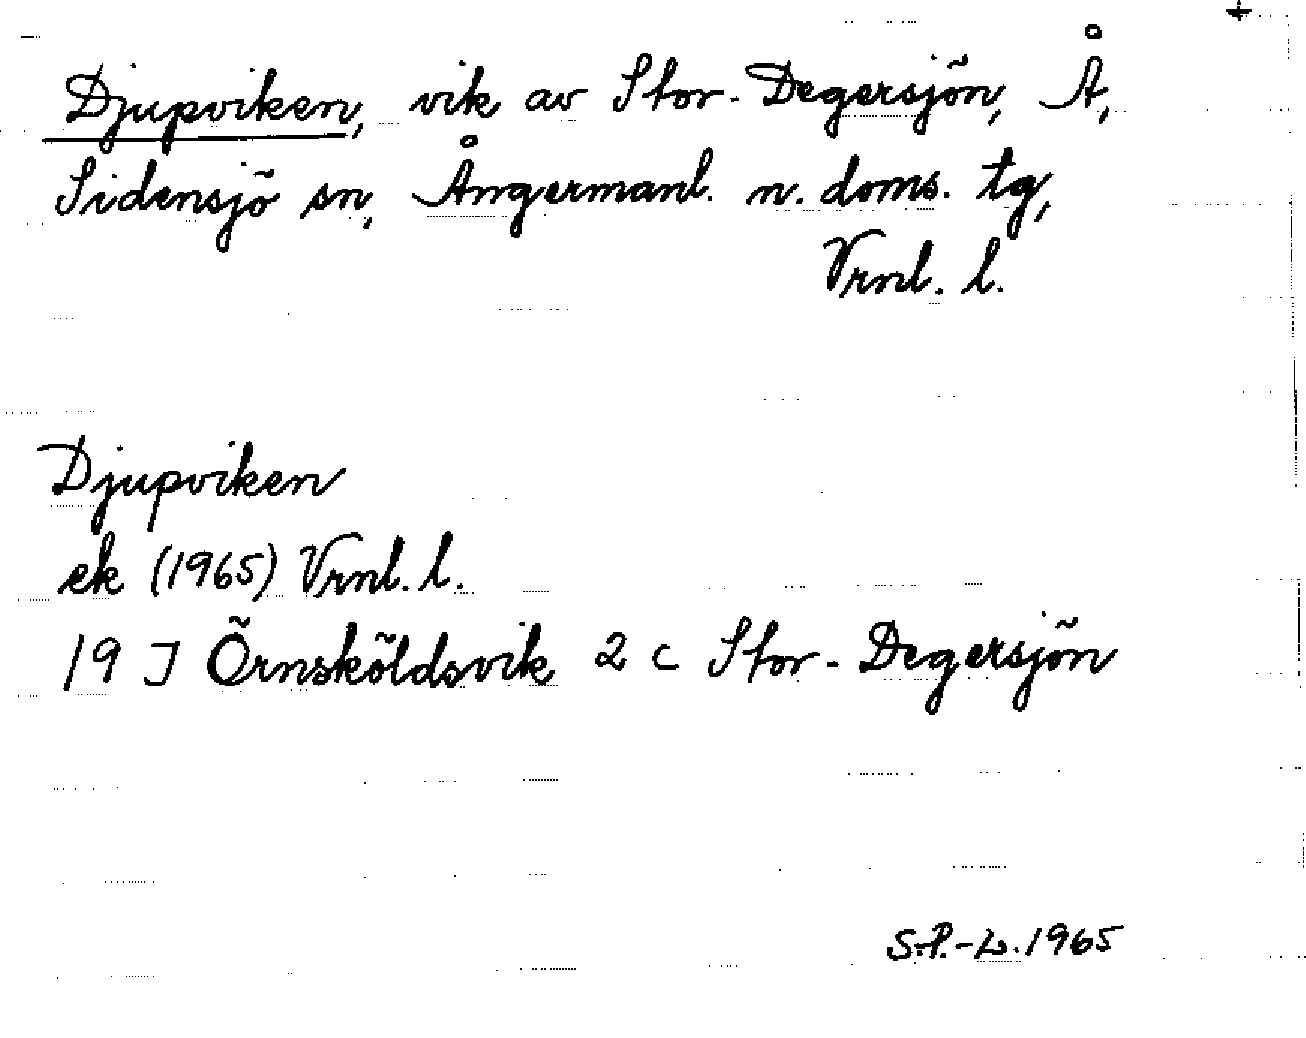 Djupviken, vik av Stor-Degersjön, Å,
Sidensjö sn, Ångermanl. n. doms. tg,
Vrnl. l.
Djupviken
ek (1965) Vrnl. l.
19 J Örnsköldsvik 2 c Stor-Degersjön
S.P.-L. 1965